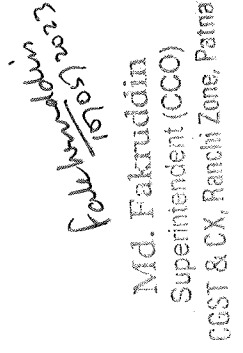 Fakruddin
19/05/2023
Md. Fakruddin
Superintendent (CCO)
CGST & CX, Ranchi Zone, Patna